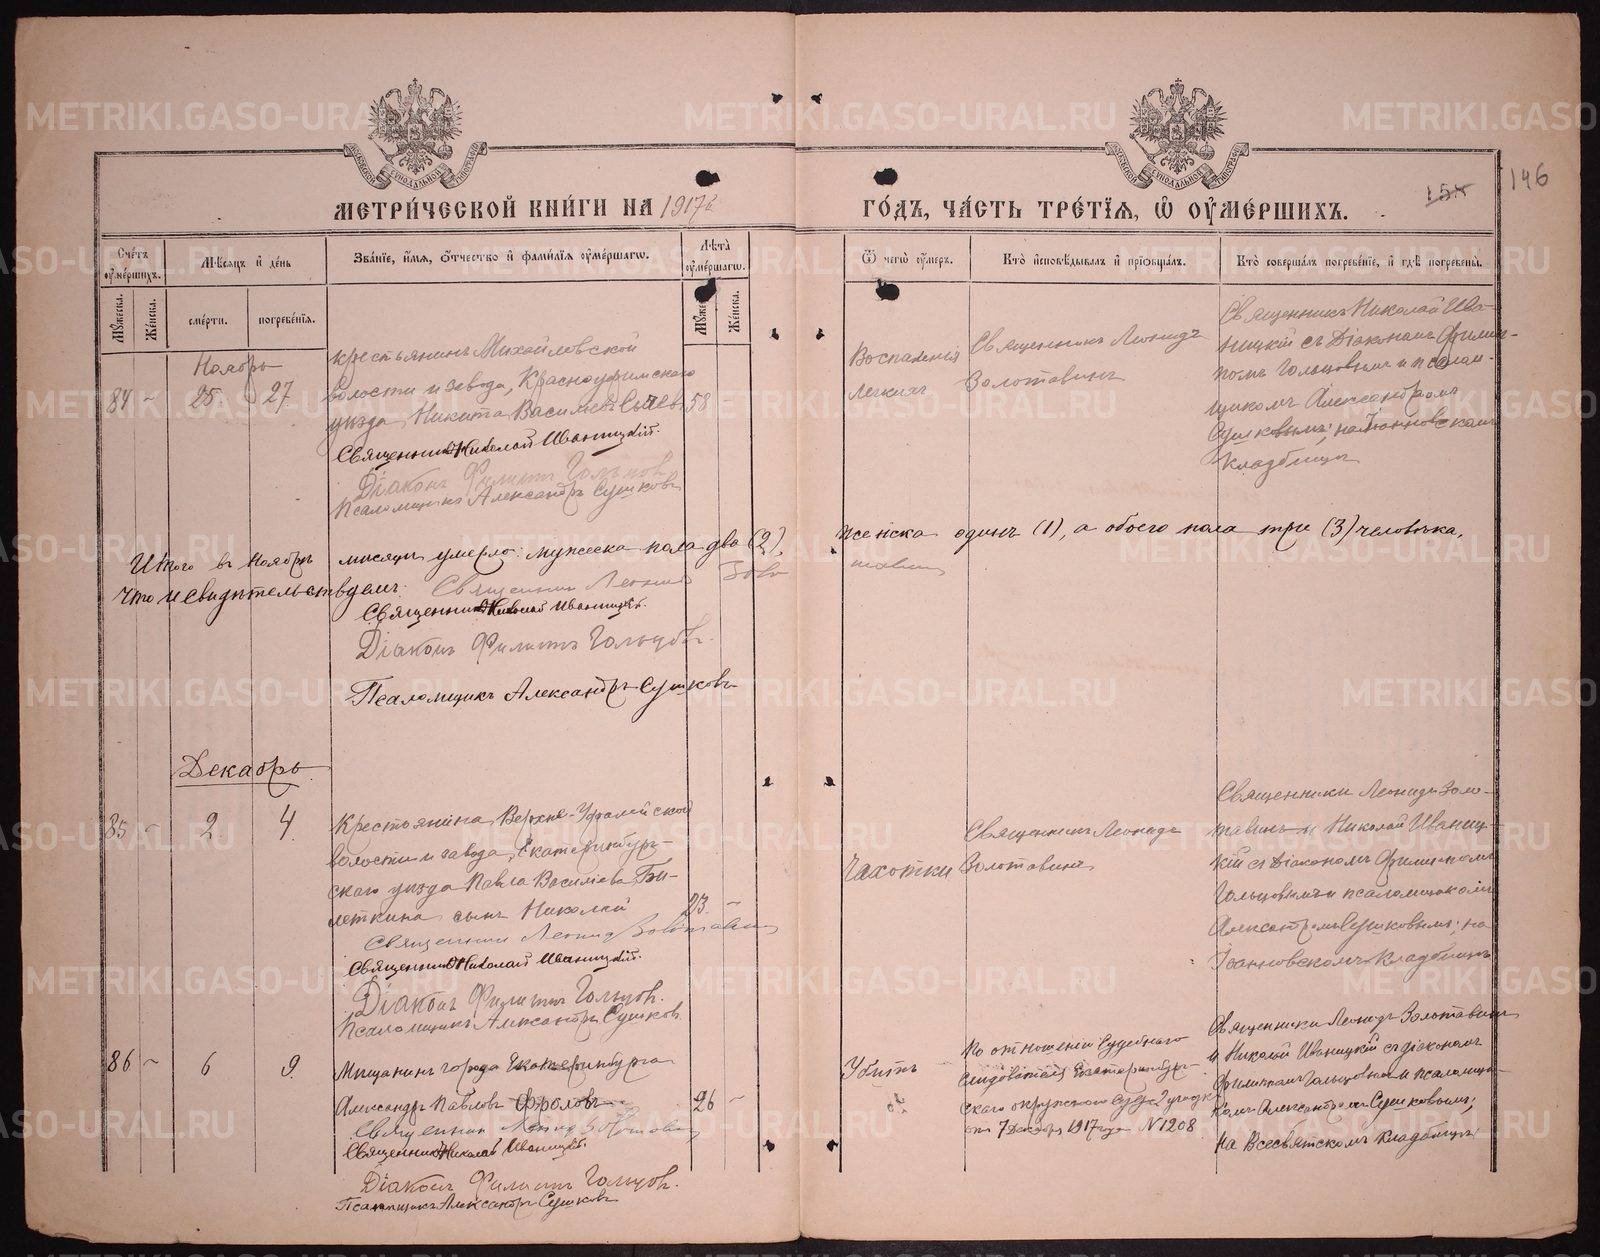 МЕТРИ́ЧЕСКОЙ КНИ́ГИ НА 1917 й
ГО́ДЪ, ЧА́СТЬ ТРЕ́ТІЯ, Ѡ ОУМЕ́РШИХЪ.
146
Сче́тъ оуме́ршихъ.
Мѣ́сяцъ и́ де́нь
Зва́ніе, и́мя, о́тчество и́ фами́лія оуме́ршагѡ.
Лѣ́та оуме́ршагѡ.
Ѿ чегѡ̀ оу́меръ.
Кто̀ и́сповѣ́дывалъ и́ пріѻбща́лъ.
Кто̀ соверша́лъ погребе́ніе, и́ гдѣ̀ погребены̀.
Му́жеска.
Же́нска.
сме́рти.
погребе́нія.
Му́жеска.
Же́нска.
Ноябрь
84 ~ 25 27
Крестьянинъ Михайловской
волости и завода, Красноуфимского
уѣзда Никита Васильевъ Сычевъ 58 –
Священникъ Николай Иваницкій.
Діаконъ Филиппъ Гольцовъ
Псаломщикъ Александръ Сушковъ
Воспаленія
легкихъ
Священникъ Леонидъ
Золотавинъ
Священникъ Николай Ива-
ницкій съ Діакономъ Филип-
помъ Гольцовымъ и псалом-
щикомъ Александромъ
Сушковымъ; на Іоанновскомъ
кладбищѣ
Итого въ Ноябрѣ мѣсяцѣ умерло: мужеска пола два (2), женска одинъ (1), а обоего пола три (3) человѣка,
что и свидѣтельствуемъ: Священникъ Леонид Золотавин
Священникъ Николай Иваницкій.
Діаконъ Филиппъ Гольцовъ.
Псаломщикъ Александръ Сушковъ
Декабрь
85 ~ 2 4
Крестьянина Верхне-Уфалейской
волости и завода, Екатеринбург-
скаго уѣзда Павла Васильева
сынъ Николай 23 –
Священник Леонид Золотавин
Священникъ Николай Иваницкій.
Діаконъ Филиппъ Гольцовъ.
Псаломщикъ Александръ Сушков.
Чахотки
Священникъ Леонидъ
Золотавинъ
Священники Леонидъ Золо-
тавинъ и Николай Иваниц-
кій съ діакономъ Филиппомъ
Гольцовымъ и псаломщикомъ
Александромъ Сушковымъ; на
Іоанновскомъ кладбищѣ
86 ~ 6 9
Мѣщанинъ города Екатеринбурга
Александръ Павловъ Фроловъ 26 –
Священник Леонид Золотавин
Священникъ Николай Иваницкій.
Діаконъ Филиппъ Гольцовъ.
Псаломщикъ Александръ Сушковъ
Убитъ
По отношенію Судебнаго
Слѣдователя Екатеринбург-
скаго окружного суда 2 участка
отъ 7 Декабря 1917 года № 1208
Священники Леонидъ Золотавинъ
и Николай Иваницкій съ діакономъ
Филиппомъ Гольцовымъ и псаломщи-
комъ Александромъ Сушковымъ;
на Всесвятскомъ кладбищѣ
METRIKI.GASO-URAL.RU